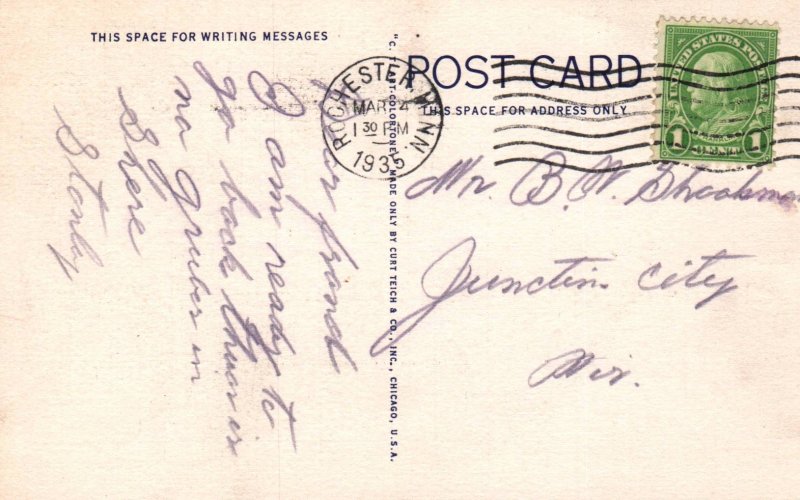 THIS SPACE FOR WRITING MESSAGES
POST CARD
THIS SPACE FOR ADDRESS ONLY
ROCHESTER, MINN.
MAR 4
1 30 PM
1935
UNITED STATES POSTAGE
1 CENT 1
"C. T. ART-COLORTONE" MADE ONLY BY CURT TEICH & CO., INC., CHICAGO, U.S.A.
Dear friend
I am ready to
go back their is
no gruber in
Shere
Stanley
Mr. B. W.
Junction City
Wis.